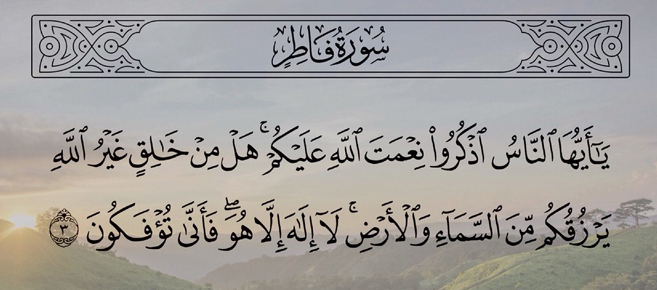 سُورَةُ فَاطِرٍ
يَـٰٓأَيُّهَا ٱلنَّاسُ ٱذْكُرُوا۟ نِعْمَتَ ٱللَّهِ عَلَيْكُمْ ۚ هَلْ مِنْ خَـٰلِقٍ غَيْرُ ٱللَّهِ
يَرْزُقُكُم مِّنَ ٱلسَّمَآءِ وَٱلْأَرْضِ ۚ لَآ إِلَـٰهَ إِلَّا هُوَ ۖ فَأَنَّىٰ تُؤْفَكُونَ ٣